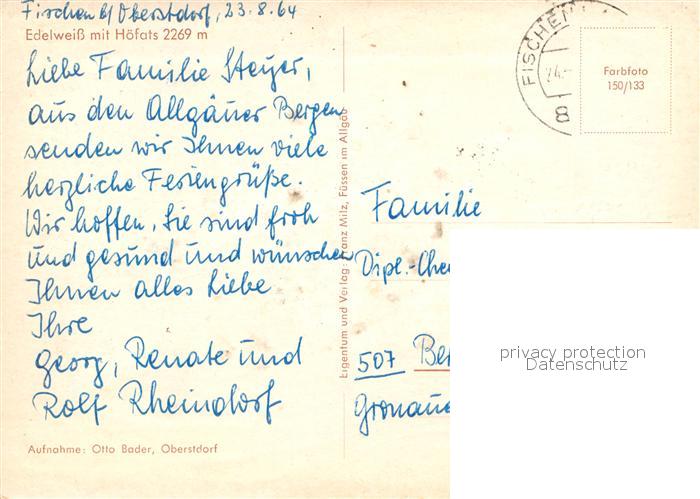 Fischen b/ Oberstdorf, 23.8.64
Edelweiß mit Höfats 2269 m
Liebe Familie Steyer,
aus den Allgäuer Bergen
senden wir Ihnen viele
herzliche Feriengrüße.
Wir hoffen, Sie sind froh
und gesund und wünschen
Ihnen alles Liebe
Ihre
Georg, Renate und
Rolf Rheindorf
Aufnahme: Otto Bader, Oberstdorf
Eigentum und Verlag: Franz Milz, Füssen im Allgäu
FISCHEN
8
Farbfoto
150/133
Familie
Dipl.-Che
507 Ber
Gronaue
privacy protection
Datenschutz